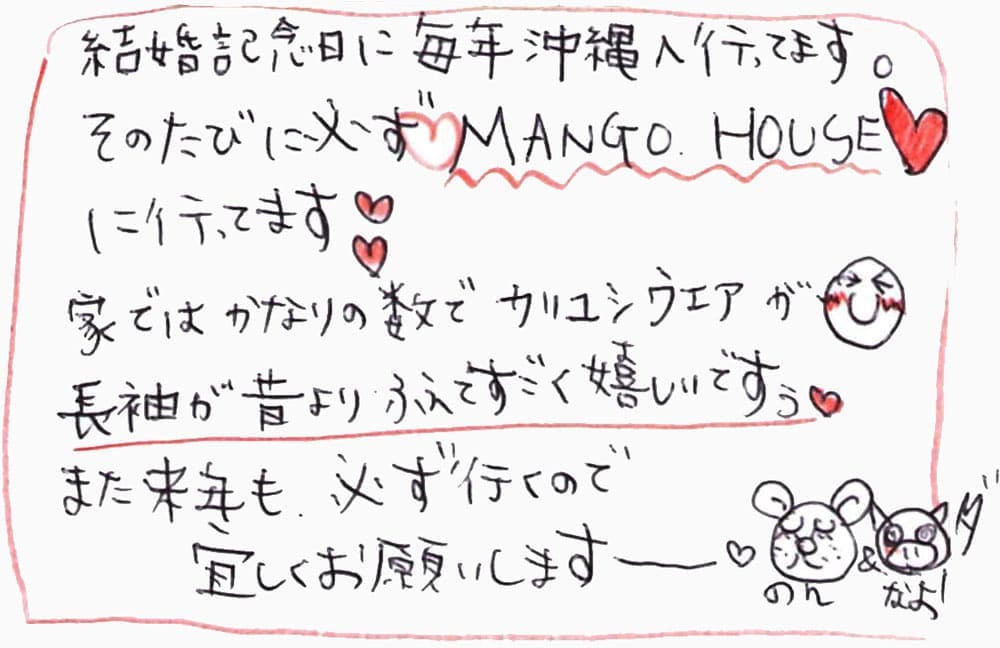 結婚記念日に毎年沖縄へ行ってます。
そのたびに必ずMANGO HOUSE
に行ってます
家ではかなりの数でカリユシウエアが
長袖が昔よりふえてすごく嬉しいですぅ
また来年も必ず行くので
宜しくお願いしますー
のん & なよ